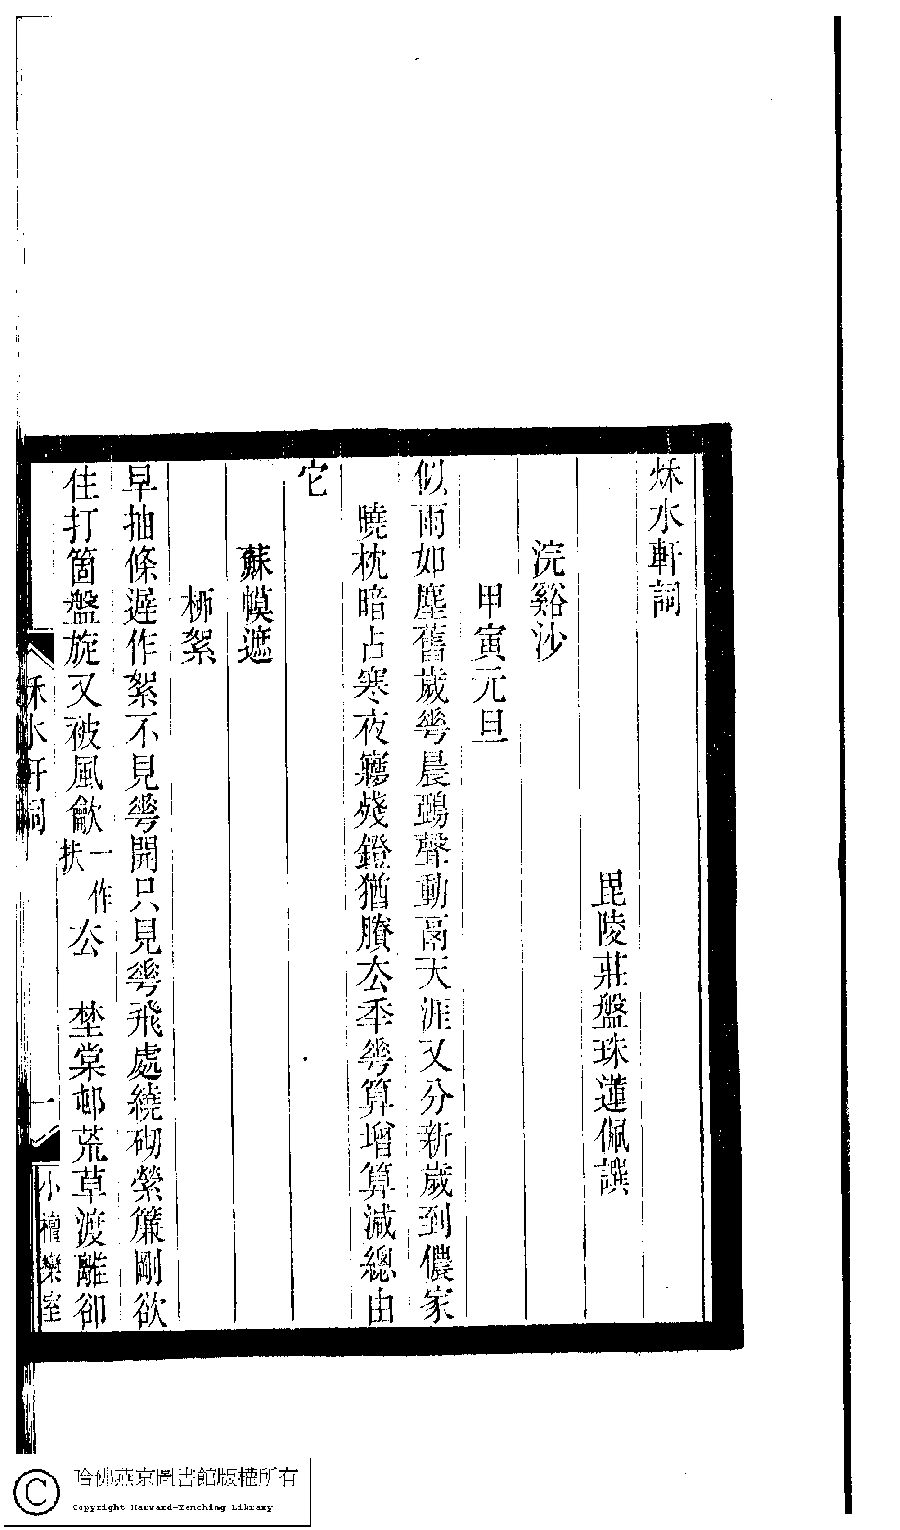 秌水軒詞
毘陵莊盤珠蓮佩譔
浣谿沙
甲寅元旦
似雨如塵舊歲𠌶晨鵶聲動鬲天涯又分新歲到儂家
曉枕暗占寒夜㝱殘鐙猶賸厺秊𠌶算增算減總由
它
蘇幙遮
栁絮
早抽條遲作絮不見𠌶開只見𠌶飛處繞砌縈簾剛欲
住打箇盤旋又被風龡一作扶厺　埜棠邨荒草渡離卻
秌水軒詞
一
小檀欒室
哈佛燕京圖書館版權所有
Copyright Harvard-Yenching Library